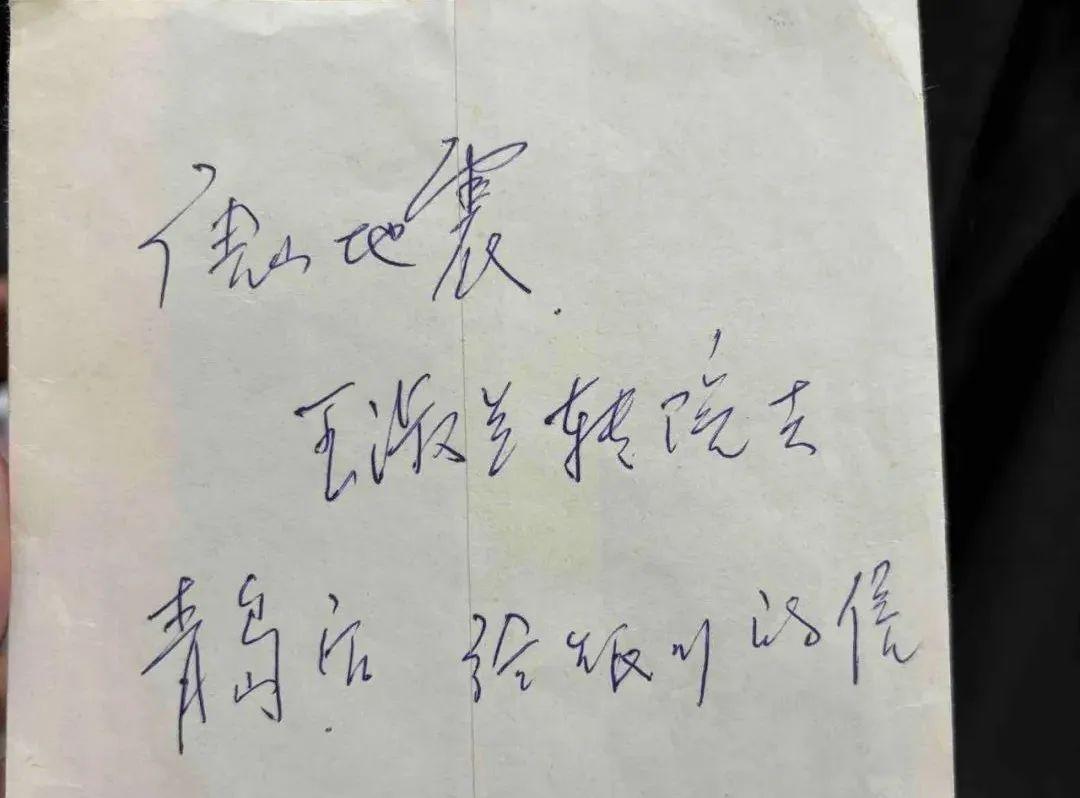 唐山地震.
王淑兰转院去
青岛后 给 川的信